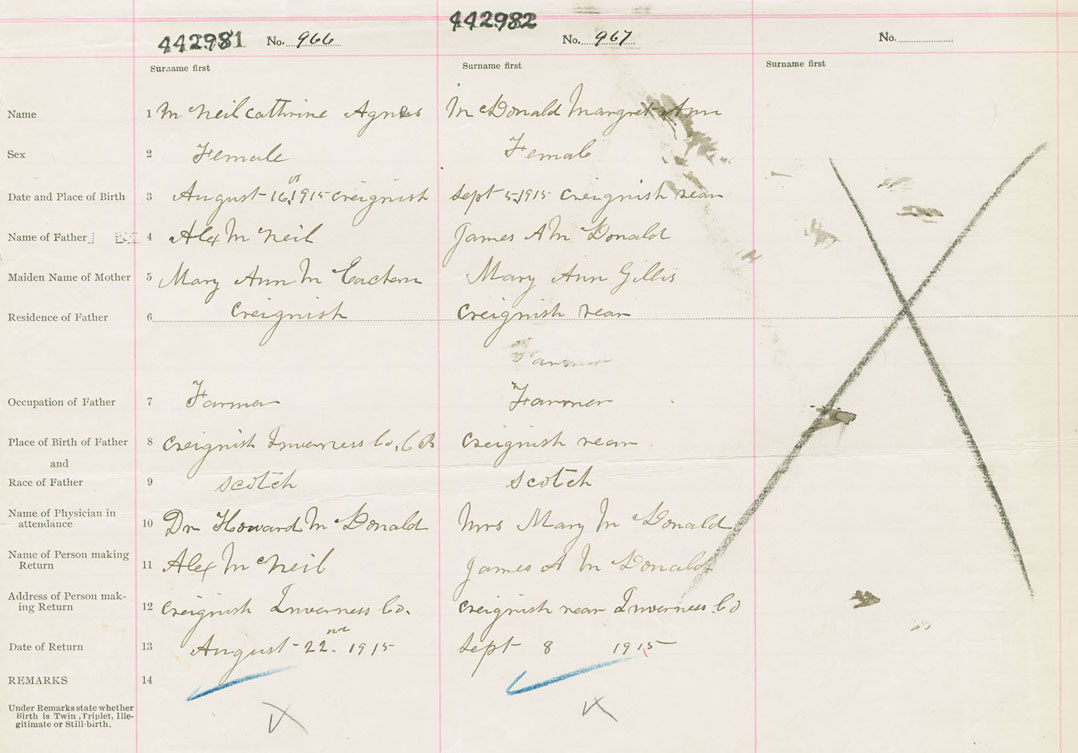 442981 No. 966 442982 No. 967 No.
Surname first Surname first Surname first
Name 1 McNeil Cathrine Agnes McDonald Margret Ann
Sex 2 Female Female
Date and Place of Birth 3 August 16th 1915 Creignish Sept 5 1915 Creignish rear
Name of Father 4 Alex McNeil James A McDonald
Maiden Name of Mother 5 Mary Ann McEachern Mary Ann Gillis
Residence of Father 6 Creignish Creignish rear
Farmer
Occupation of Father 7 Farmer Farmer
Place of Birth of Father 8 Creignish Inverness Co, C B Creignish rear
and
Race of Father 9 Scotch Scotch
Name of Physician in
attendance 10 Dr Howard McDonald Mrs Mary McDonald
Name of Person making
Return 11 Alex McNeil James A McDonald
Address of Person mak-
ing Return 12 Creignish Inverness Co. Creignish rear Inverness Co
Date of Return 13 August 22nd 1915 Sept 8 1915
REMARKS 14
Under Remarks state whether
Birth is Twin, Triplet, Ille-
gitimate or Still-birth.